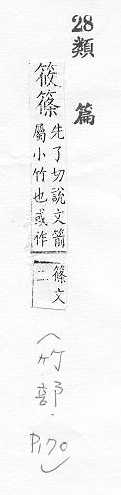 28
類篇
筱篠
先了切說文箭
屬小竹也或作
篠文
二
(竹部.
P170)